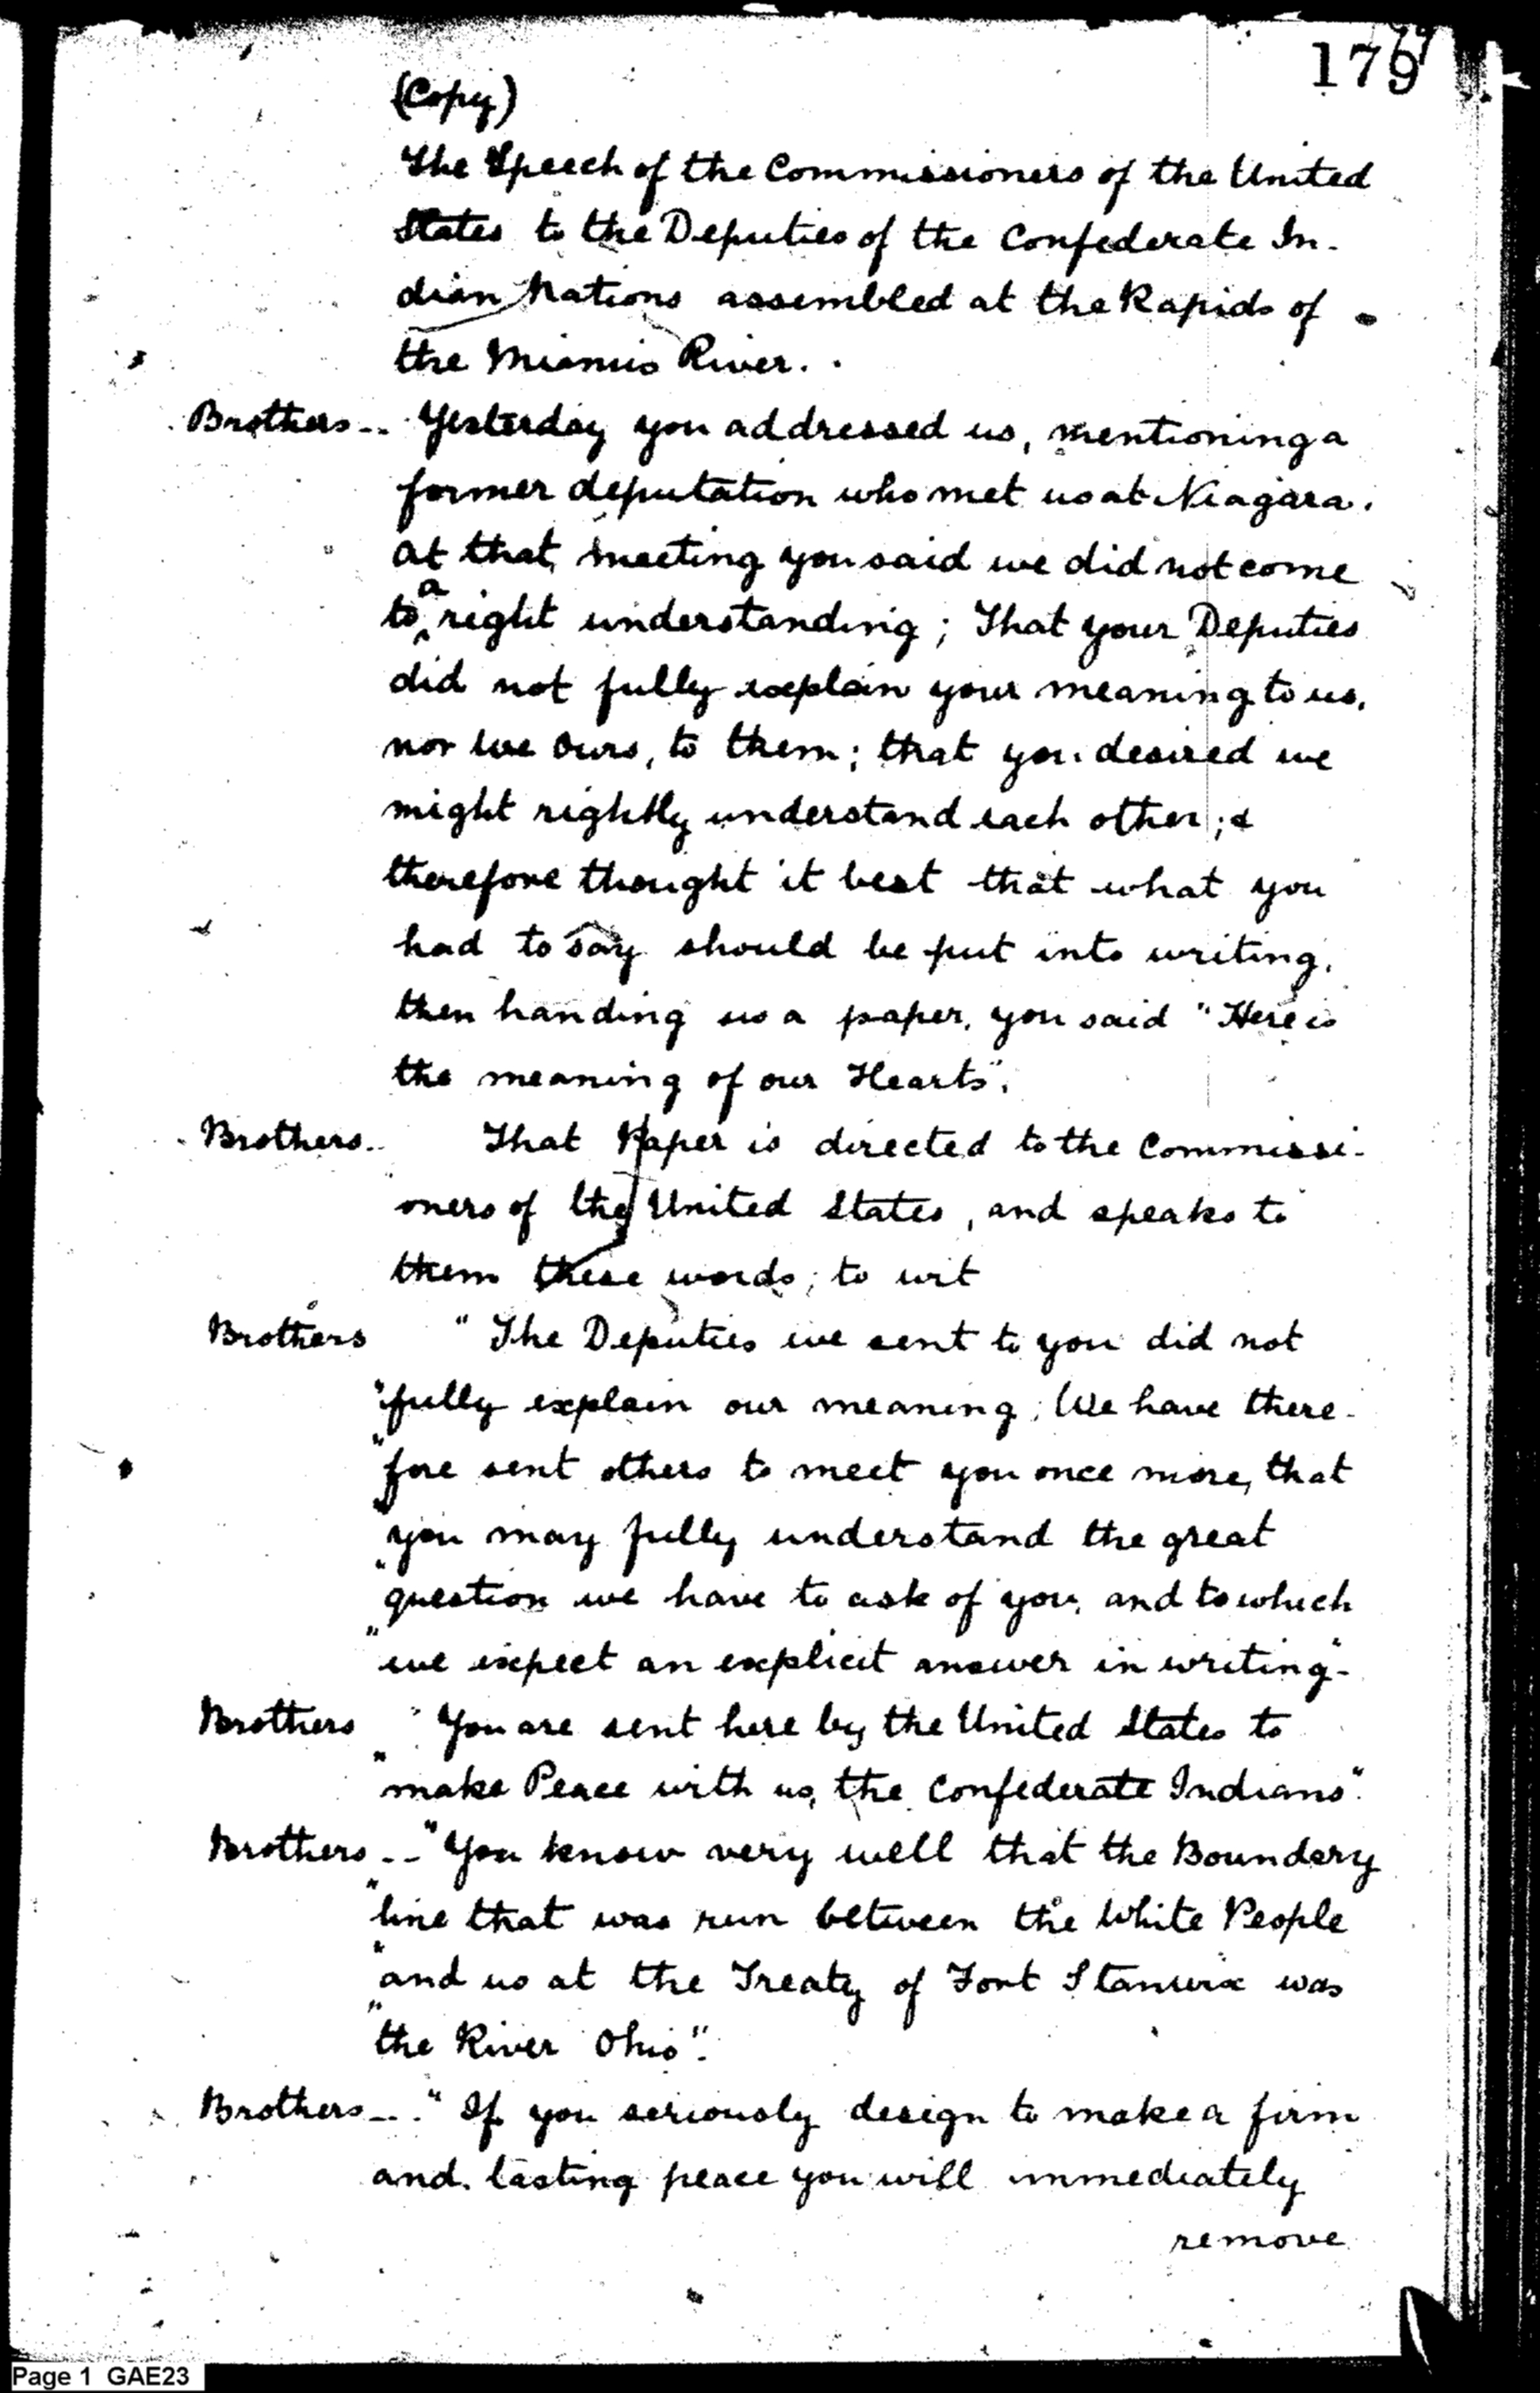 179
(Copy)
The Speech of the Commissioners of the United
States to the Deputies of the Confederate In-
dian Nations assembled at the Rapids of
the Miamis River.
Brothers -- Yesterday you addressed us, mentioning a
former deputation who met us at Niagara.
At that meeting you said we did not come
to a right understanding; That your Deputies
did not fully explain your meaning to us,
nor we ours, to them; that you desired we
might rightly understand each other; &
therefore thought it best that what you
had to say should be put into writing,
then handing us a paper, you said "Here is
the meaning of our Hearts".
Brothers.. That Paper is directed to the Commissi-
oners of the United States, and speaks to
them these words; to wit
Brothers "The Deputies we sent to you did not
"fully explain our meaning; We have there-
"fore sent others to meet you once more, that
"you may fully understand the great
"question we have to ask of you, and to which
"we expect an explicit answer in writing"-
Brothers "You are sent here by the United States to
"make Peace with us, the Confederate Indians".
Brothers -- "You know very well that the Boundary
"line that was run between the White People
"and us at the Treaty of Fort Stanwix was
"the River Ohio".
Brothers -- "If you seriously design to make a firm
and lasting peace you will immediately
remove
Page 1 GAE23